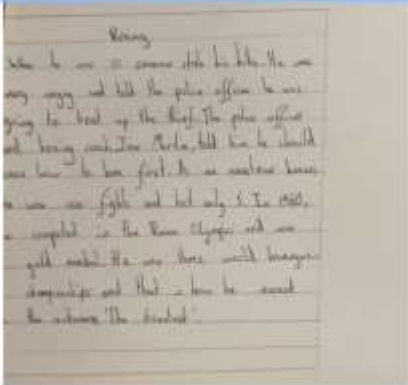 Boxing
When he was 12 someone stole his bike. He was
very angry and told the police officer he was
going to beat up the thief. The police officer
and boxing coach, Joe Martin, told him he should
learn how to box first. As an amateur boxer,
he won 100 fights and lost only 5. In 1960,
he competed in the Rome Olympic and won
gold medal. He won three world heavyweight
championships and that is how he earned
the nickname "The Greatest".